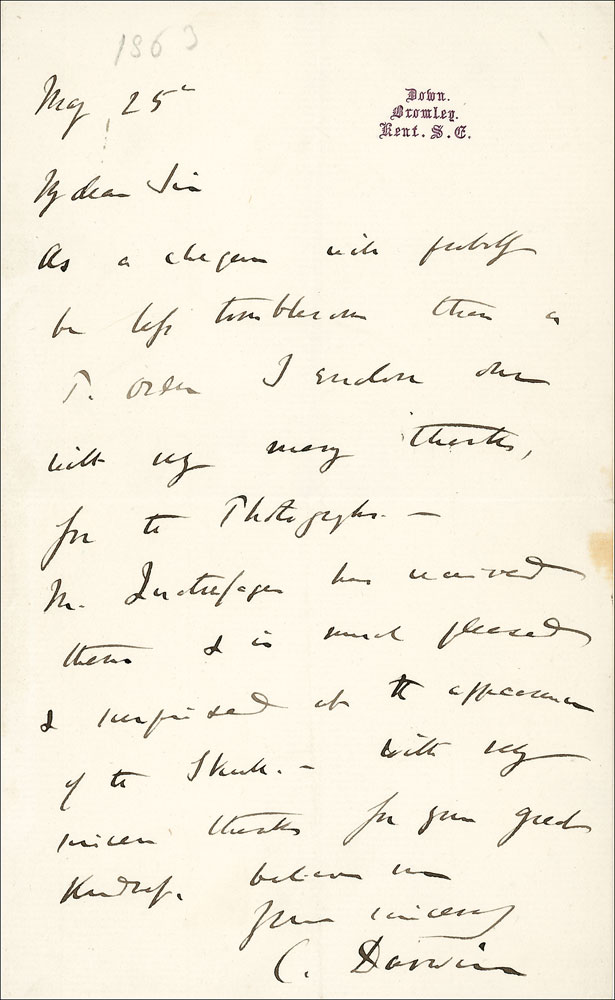 1863
May 25th
Down.
Bromley.
Kent. S. E.
My dear Sir
As a cheque will probably
be less troublesome than a
P. order I enclose one
with my many thanks,
for the Photographs. —
M. Quatrefages has received
them & is much pleased
& surprised at the appearance
of the Skull. — With my
sincere thanks for your great
kindness, believe me
Yours sincerely
C. Darwin